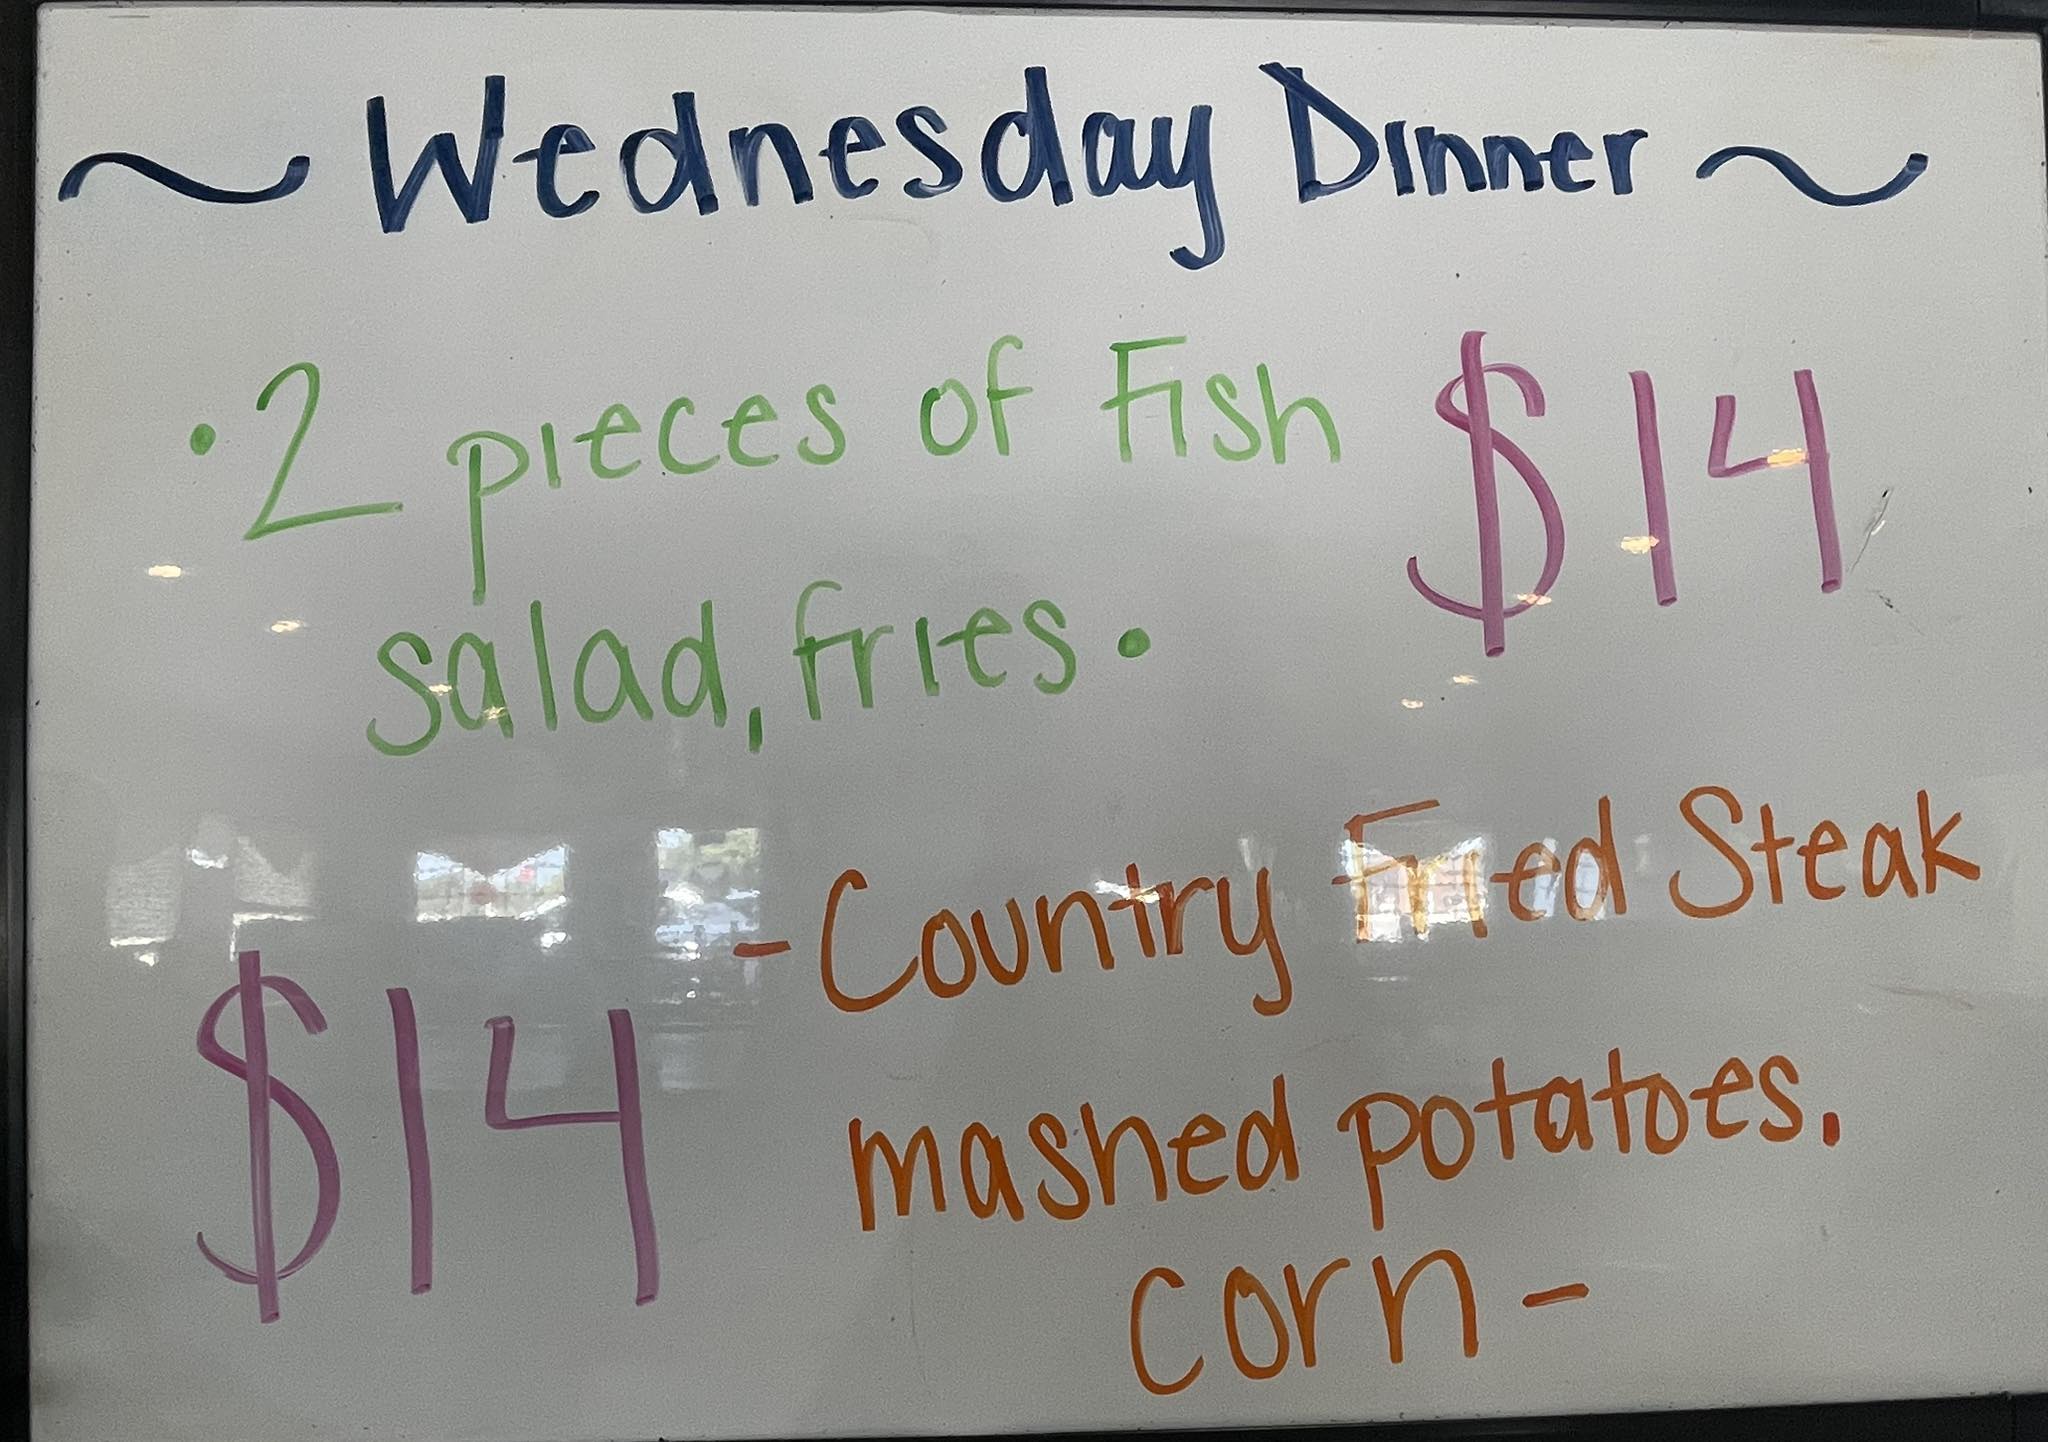 ~ Wednesday Dinner ~
• 2 pieces of Fish $14
salad, fries •
- Country Fried Steak
$14 mashed potatoes,
corn -